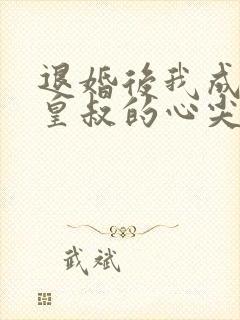 退婚後我成
皇叔的心尖
武斌